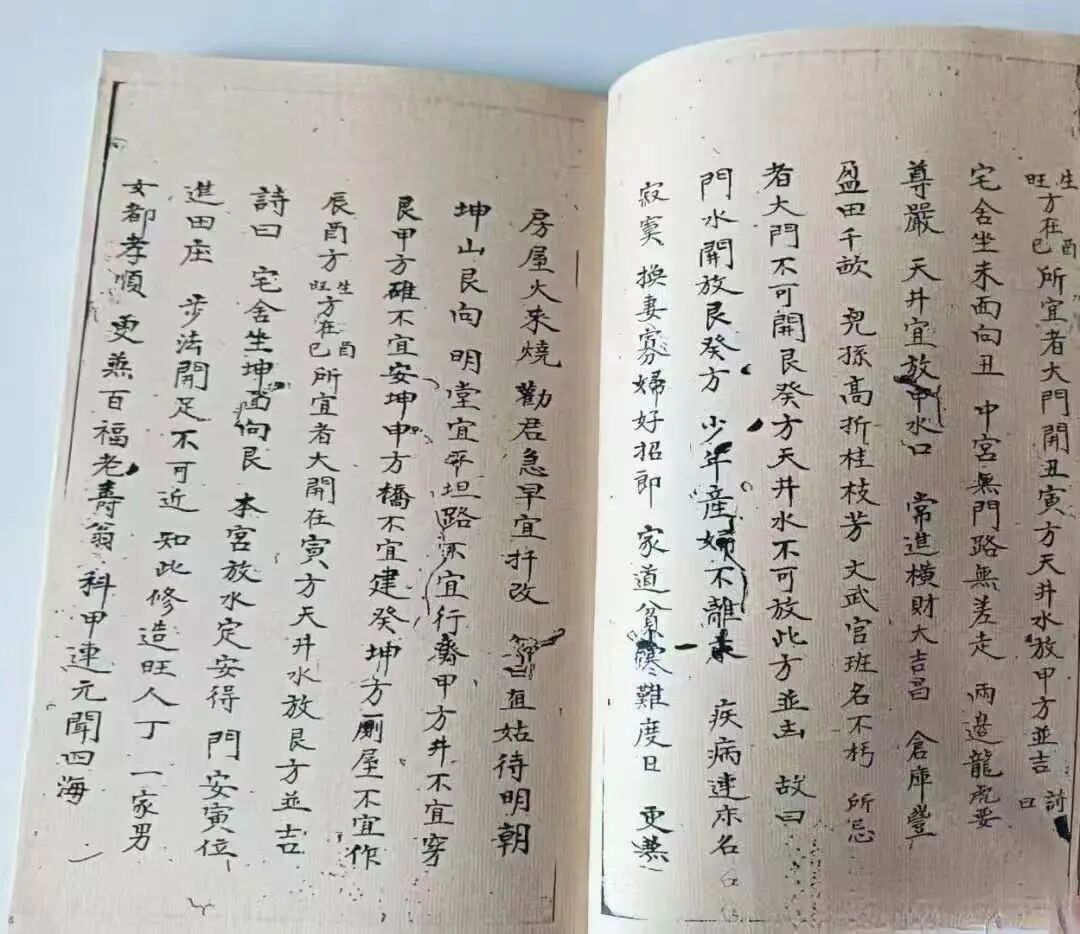 生旺方在酉巳所宜者大門開丑寅方天井水放甲方並吉 詩曰
宅舍坐未面向丑 中宮無門路無差走 兩邊龍虎要
尊嚴 天井宜放甲水口 常進橫財大吉昌 倉庫豐
盈田千畝 兒孫高折桂枝芳 文武官班名不朽 所忌
者大門不可開艮癸方天井水不可放此方並凶 故曰
門水開放艮癸方 少年產婦不離床 疾病連床名
寂寞 換妻寡婦好招郎 家道貧寒難度日 更兼
房屋火來燒 勸君急早宜拆改 姑待明朝
坤山艮向 明堂宜平坦路不宜行 甲方井不宜穿
艮甲方碓不宜安坤申方橋不宜建癸坤方厠屋不宜作
辰酉方生旺方在酉巳所宜者大開在寅方天井水放艮方並吉
詩曰 宅舍坐坤面向艮 本宮放水定安得 門安寅位
進田庄 步法開足不可近 知此修造旺人丁 一家男
女都孝順 更兼百福老壽翁 科甲連元聞四海